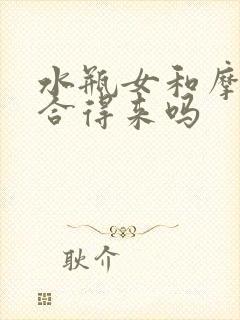 水瓶女和摩
合得来吗
耿介